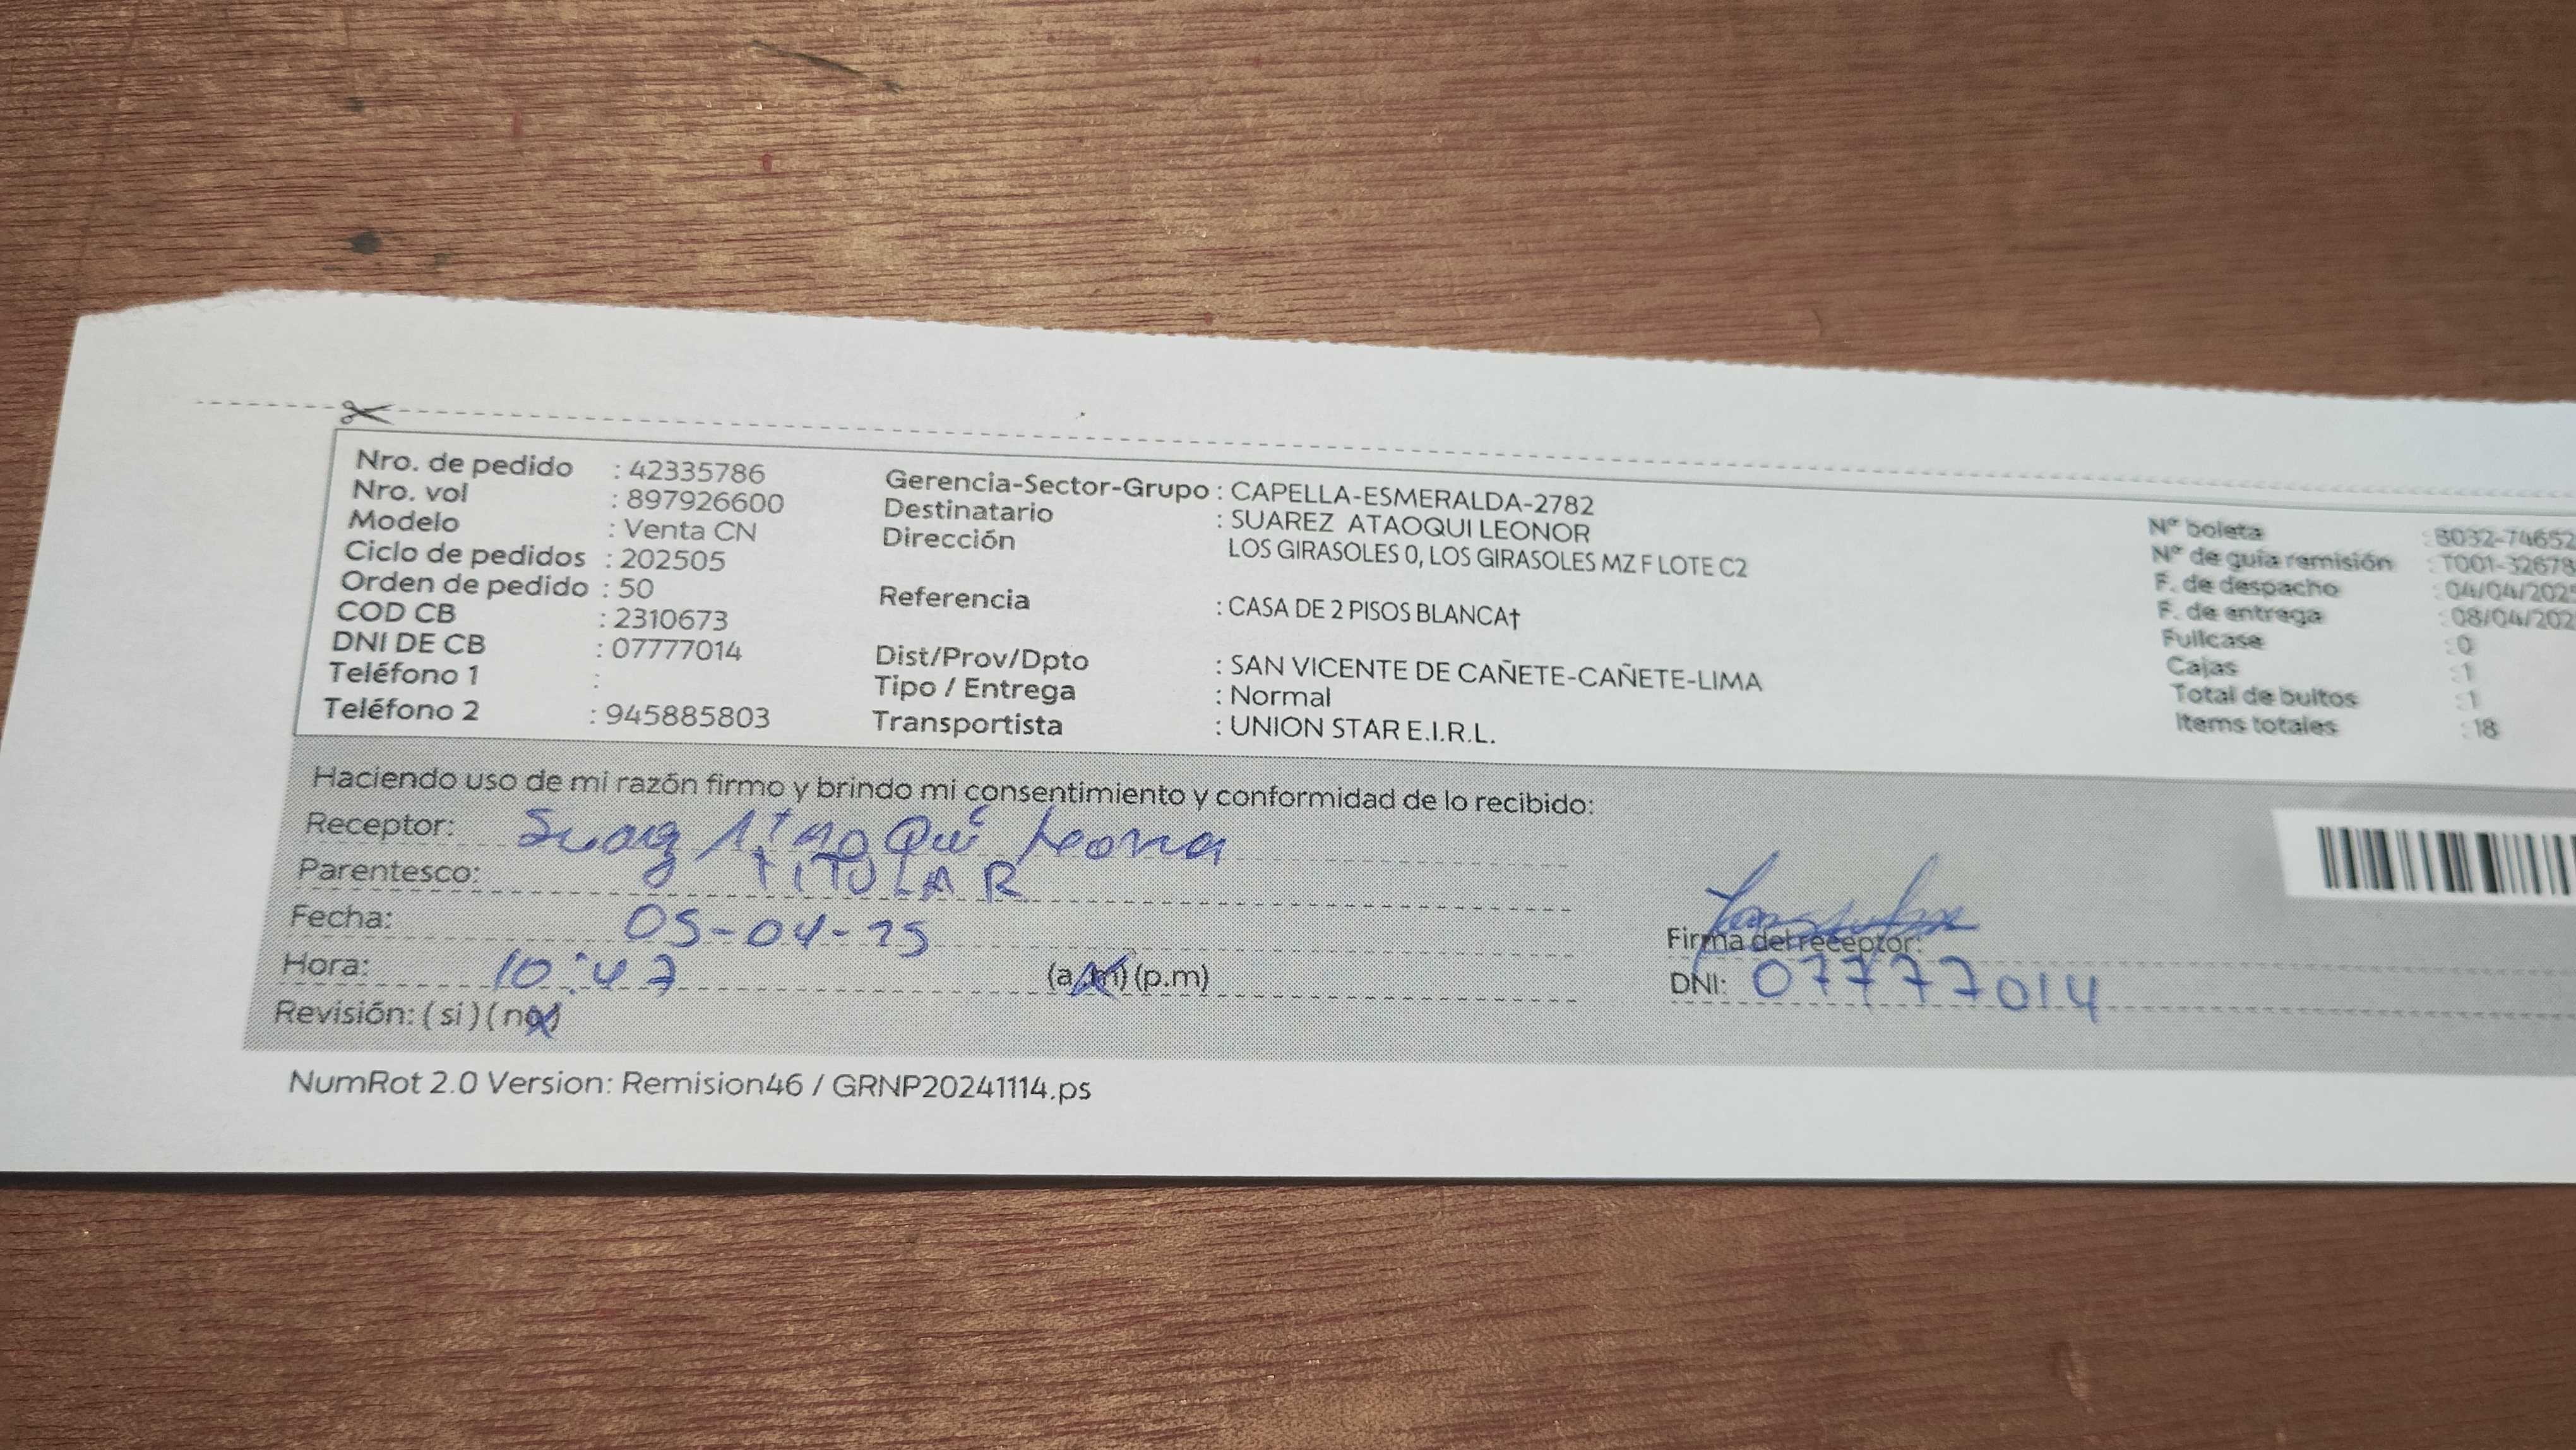 Nro. de pedido : 42335786
Nro. vol : 897926600
Modelo : Venta CN
Ciclo de pedidos : 202505
Orden de pedido : 50
COD CB : 2310673
DNI DE CB : 07777014
Teléfono 1 :
Teléfono 2 : 945885803
Gerencia-Sector-Grupo : CAPELLA-ESMERALDA-2782
Destinatario : SUAREZ ATAOQUI LEONOR
Dirección LOS GIRASOLES 0, LOS GIRASOLES MZ F LOTE C2
Referencia : CASA DE 2 PISOS BLANCA†
Dist/Prov/Dpto : SAN VICENTE DE CAÑETE-CAÑETE-LIMA
Tipo / Entrega : Normal
Transportista : UNION STAR E.I.R.L.
Nº boleta : B032-74652
Nº de guía remisión : T001-32678
F. de despacho : 04/04/2025
F. de entrega : 08/04/202
Fullcase : 0
Cajas : 1
Total de bultos : 1
Items totales : 18
Haciendo uso de mi razón firmo y brindo mi consentimiento y conformidad de lo recibido:
Receptor:
Parentesco: TITULAR
Fecha: 05-04-25
Hora: 10:47 (a.m) (p.m)
Revisión: ( si ) ( no )
Firma del receptor:
DNI: 07777014
NumRot 2.0 Version: Remision46 / GRNP20241114.ps